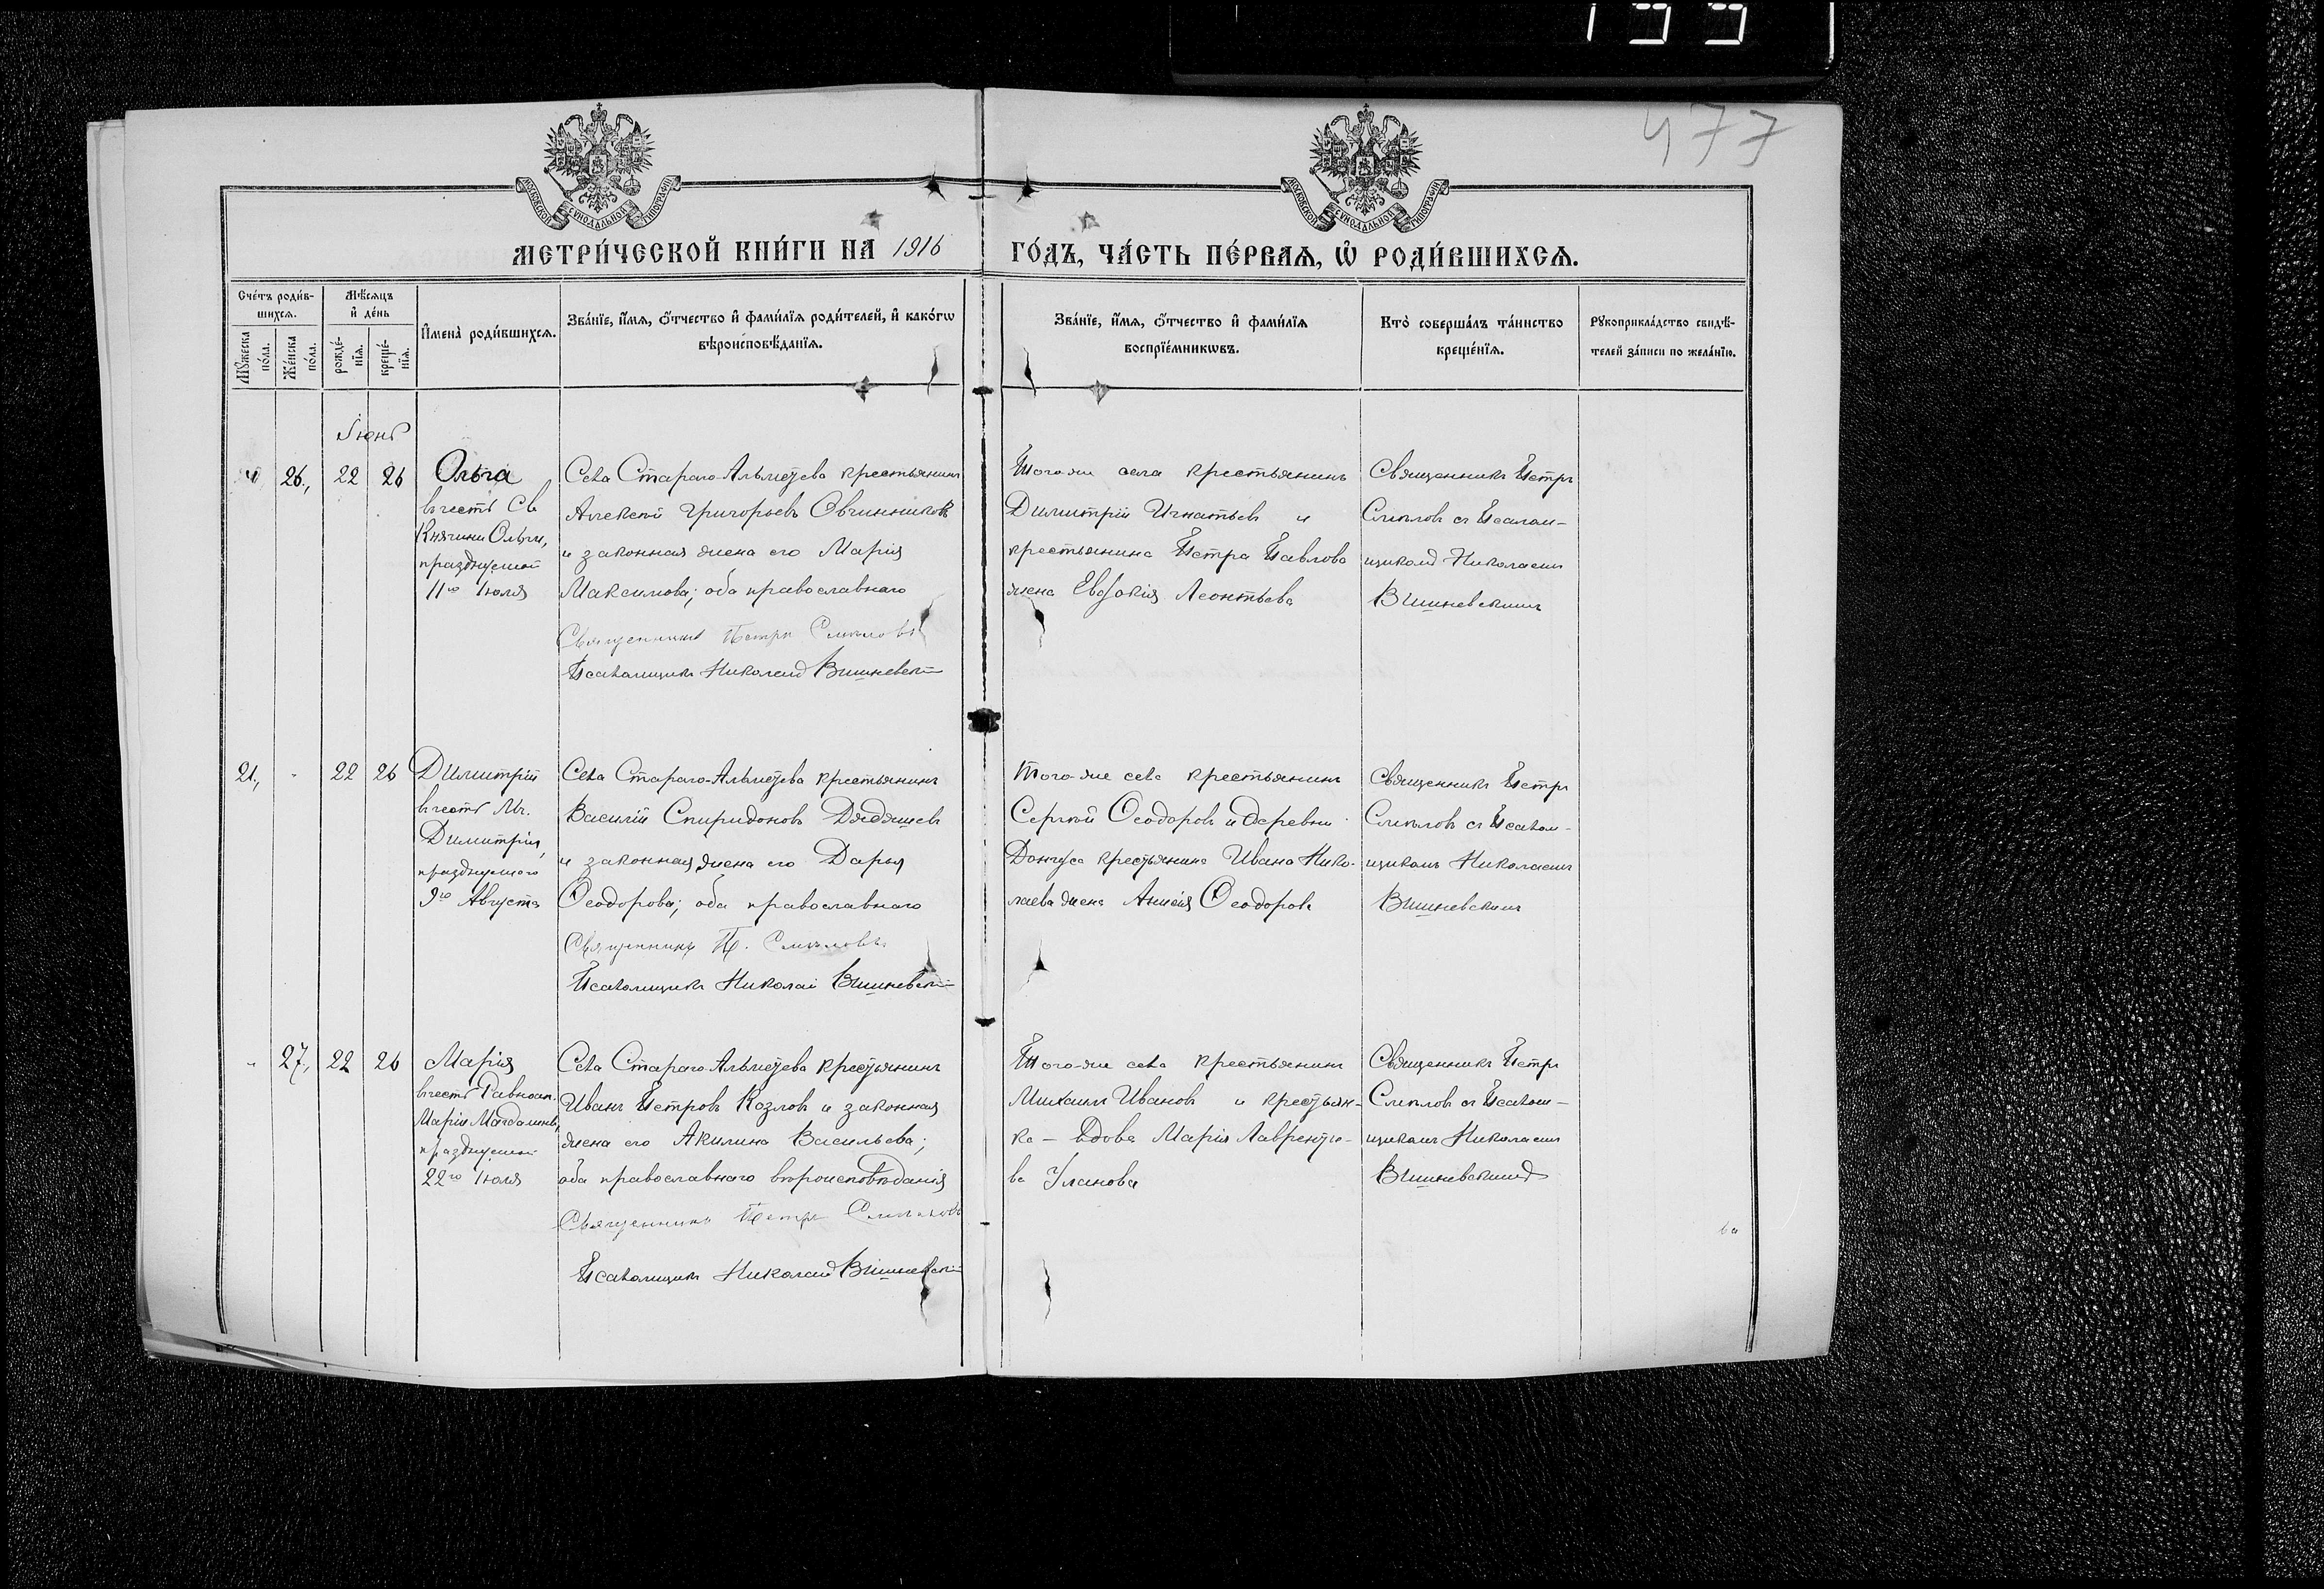 477
МОСКОВСКОЙ СѴНОДАЛЬНОЙ ТИПОГРАФІИ
МОСКОВСКОЙ СѴНОДАЛЬНОЙ ТИПОГРАФІИ
МЕТРИ́ЧЕСКОЙ КНИ́ГИ НА 1916 ГО́ДЪ, ЧА́СТЬ ПЕ́РВАѦ, Ѡ҆ РОДИ́ВШИХСѦ.
Сче́тъ роди́в-
шихсѧ.
Мꙋ́жеска
по́ла.
Же́нска
по́ла.
Мѣ́сѧцъ
и҆ де́нь
рожде́-
нїѧ.
креще́-
нїѧ.
И҆мена̀ роди́вшихсѧ.
Зва́нїе, и҆́мѧ, ѻ҆́тчество и҆ фами́лїѧ роди́телей, и҆ како́гѡ
вѣроисповѣ́данїѧ.
Зва́нїе, и҆́мѧ, ѻ҆́тчество и҆ фами́лїѧ
воспрїе́мникѡвъ.
Кто̀ соверша́лъ та́инство
креще́нїѧ.
Рꙋкоприкла́дство свидѣ́-
телей за́писи по жела́нїю.
Іюнь
26, 22 26
Ольга
въ честь Св
Княгини Ольги,
празднуемой
11го Іюля
Села Стараго-Альметева крестьянинъ
Алексѣй Григорьевъ Овчинниковъ
и законная жена его Марія
Максимова; оба православнаго
Священникъ Петръ
Псаломщикъ Николай Вишневскій
Того-же села крестьянинъ
Димитрій Игнатьевъ и
крестьянина Петра Павлова
жена Евдокія Леонтьева
Священникъ Петръ
съ Псалом-
щикомъ Николаемъ
Вишневскимъ
21, " 22 26
Димитрій
въ честь Мч.
Димитрія,
празднуемаго
9го Августа
Села Стараго-Альметева крестьянинъ
Василій Спиридоновъ
и законная жена его Дарья
Ѳеодорова; оба православнаго
Священникъ П.
Псаломщикъ Николай Вишневскій
Того-же села крестьянинъ
Сергѣй Ѳеодоровъ и деревни
крестьянина Ивана Нико-
лаева жена Анисія Ѳеодорова
Священникъ Петръ
съ Псалом-
щикомъ Николаемъ
Вишневскимъ
" 27, 22 26
Марія
въ честь Равноап.
Маріи Магдалины,
празднуемой
22го Іюля
Села Стараго-Альметева крестьянинъ
Иванъ Петровъ Козловъ и законная
жена его Акилина Васильева;
оба православнаго вѣроисповѣданія
Священникъ Петръ
Псаломщикъ Николай Вишневскій
Того-же села крестьянинъ
Михаилъ Ивановъ и крестьян-
ка - вдова Марія Лаврентье-
ва Уланова
Священникъ Петръ
съ Псалом-
щикомъ Николаемъ
Вишневскимъ